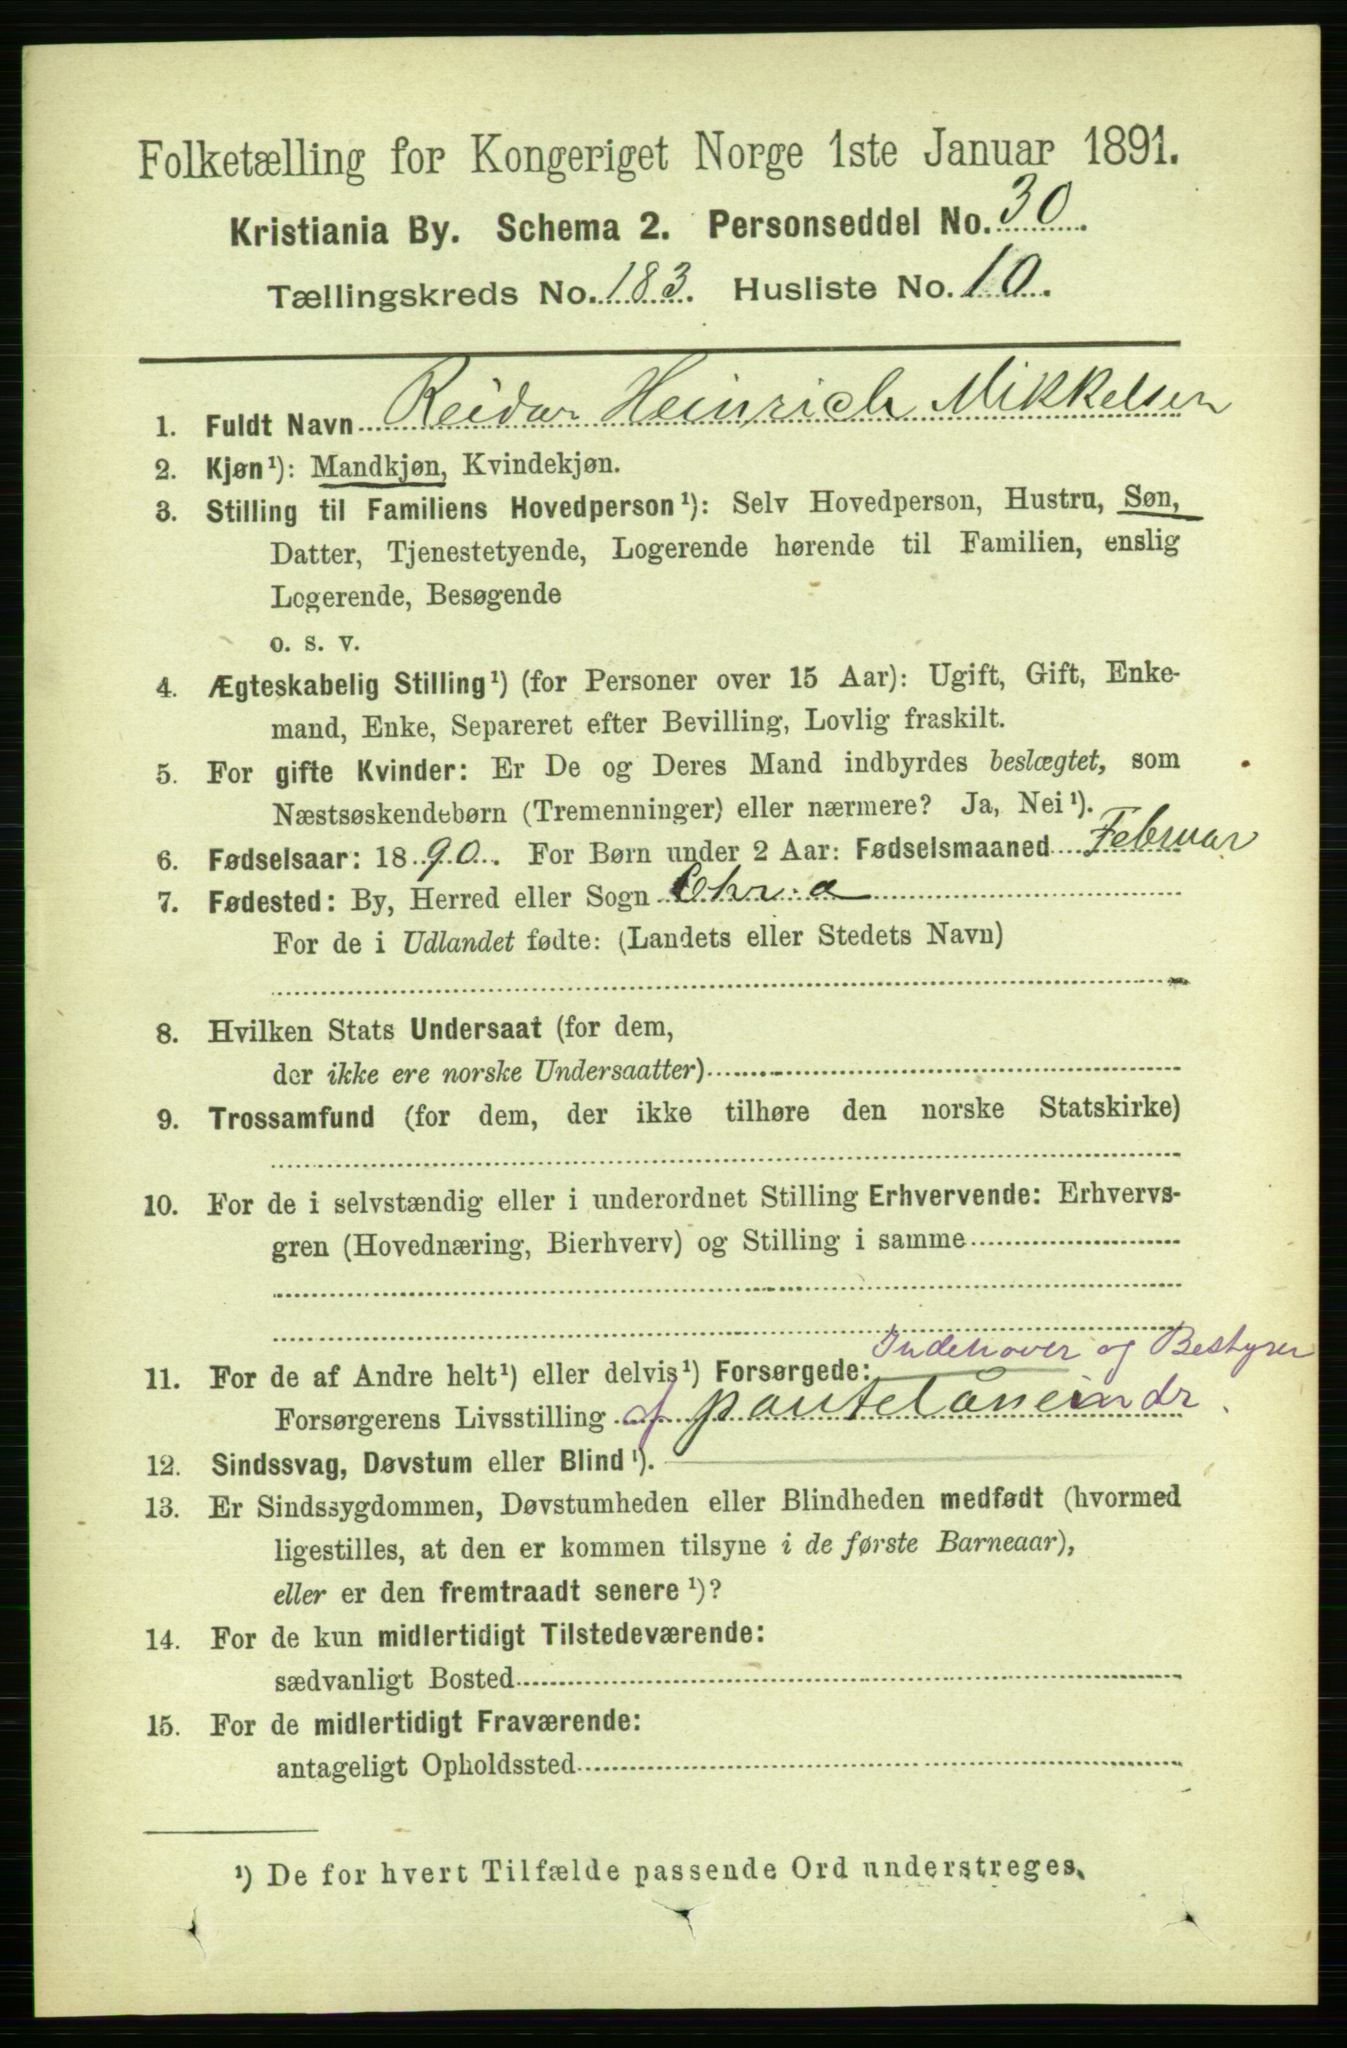 Folketælling for Kongeriget Norge 1ste Januar 1891.
Kristiania By. Schema 2. Personseddel No. 30.
Tællingskreds No. 183. Husliste No. 10.
1. Fuldt Navn Reidar Heinrich Mikkelsen
2. Kjøn¹): Mandkjøn, Kvindekjøn.
3. Stilling til Familiens Hovedperson¹): Selv Hovedperson, Hustru, Søn,
Datter, Tjenestetyende, Logerende hørende til Familien, enslig
Logerende, Besøgende
o. s. v.
4. Ægteskabelig Stilling¹) (for Personer over 15 Aar): Ugift, Gift, Enke-
mand, Enke, Separeret efter Bevilling, Lovlig fraskilt.
5. For gifte Kvinder: Er De og Deres Mand indbyrdes beslægtet, som
Næstsøskendebørn (Tremenninger) eller nærmere? Ja, Nei¹).
6. Fødselsaar: 1890. For Børn under 2 Aar: Fødselsmaaned Februar
7. Fødested: By, Herred eller Sogn Chr.a
For de i Udlandet fødte: (Landets eller Stedets Navn)
8. Hvilken Stats Undersaat (for dem,
der ikke ere norske Undersaatter)
9. Trossamfund (for dem, der ikke tilhøre den norske Statskirke)
10. For de i selvstændig eller i underordnet Stilling Erhvervende: Erhvervs-
gren (Hovednæring, Bierhverv) og Stilling i samme
Indehaver og Bestyrer
11. For de af Andre helt¹) eller delvis¹) Forsørgede:
Forsørgerens Livsstilling af
12. Sindssvag, Døvstum eller Blind¹).
13. Er Sindssygdommen, Døvstumheden eller Blindheden medfødt (hvormed
ligestilles, at den er kommen tilsyne i de første Barneaar),
eller er den fremtraadt senere¹)?
14. For de kun midlertidigt Tilstedeværende:
sædvanligt Bosted
15. For de midlertidigt Fraværende:
antageligt Opholdssted
¹) De for hvert Tilfælde passende Ord understreges.